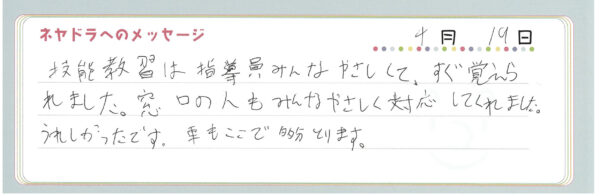 ネヤドラへのメッセージ 9月 19日
技能教習は指導員みんなやさしくて、すぐ覚えら
れました。窓口の人もみんなやさしく対応してくれました。
うれしかったです。車もここで多分とります。